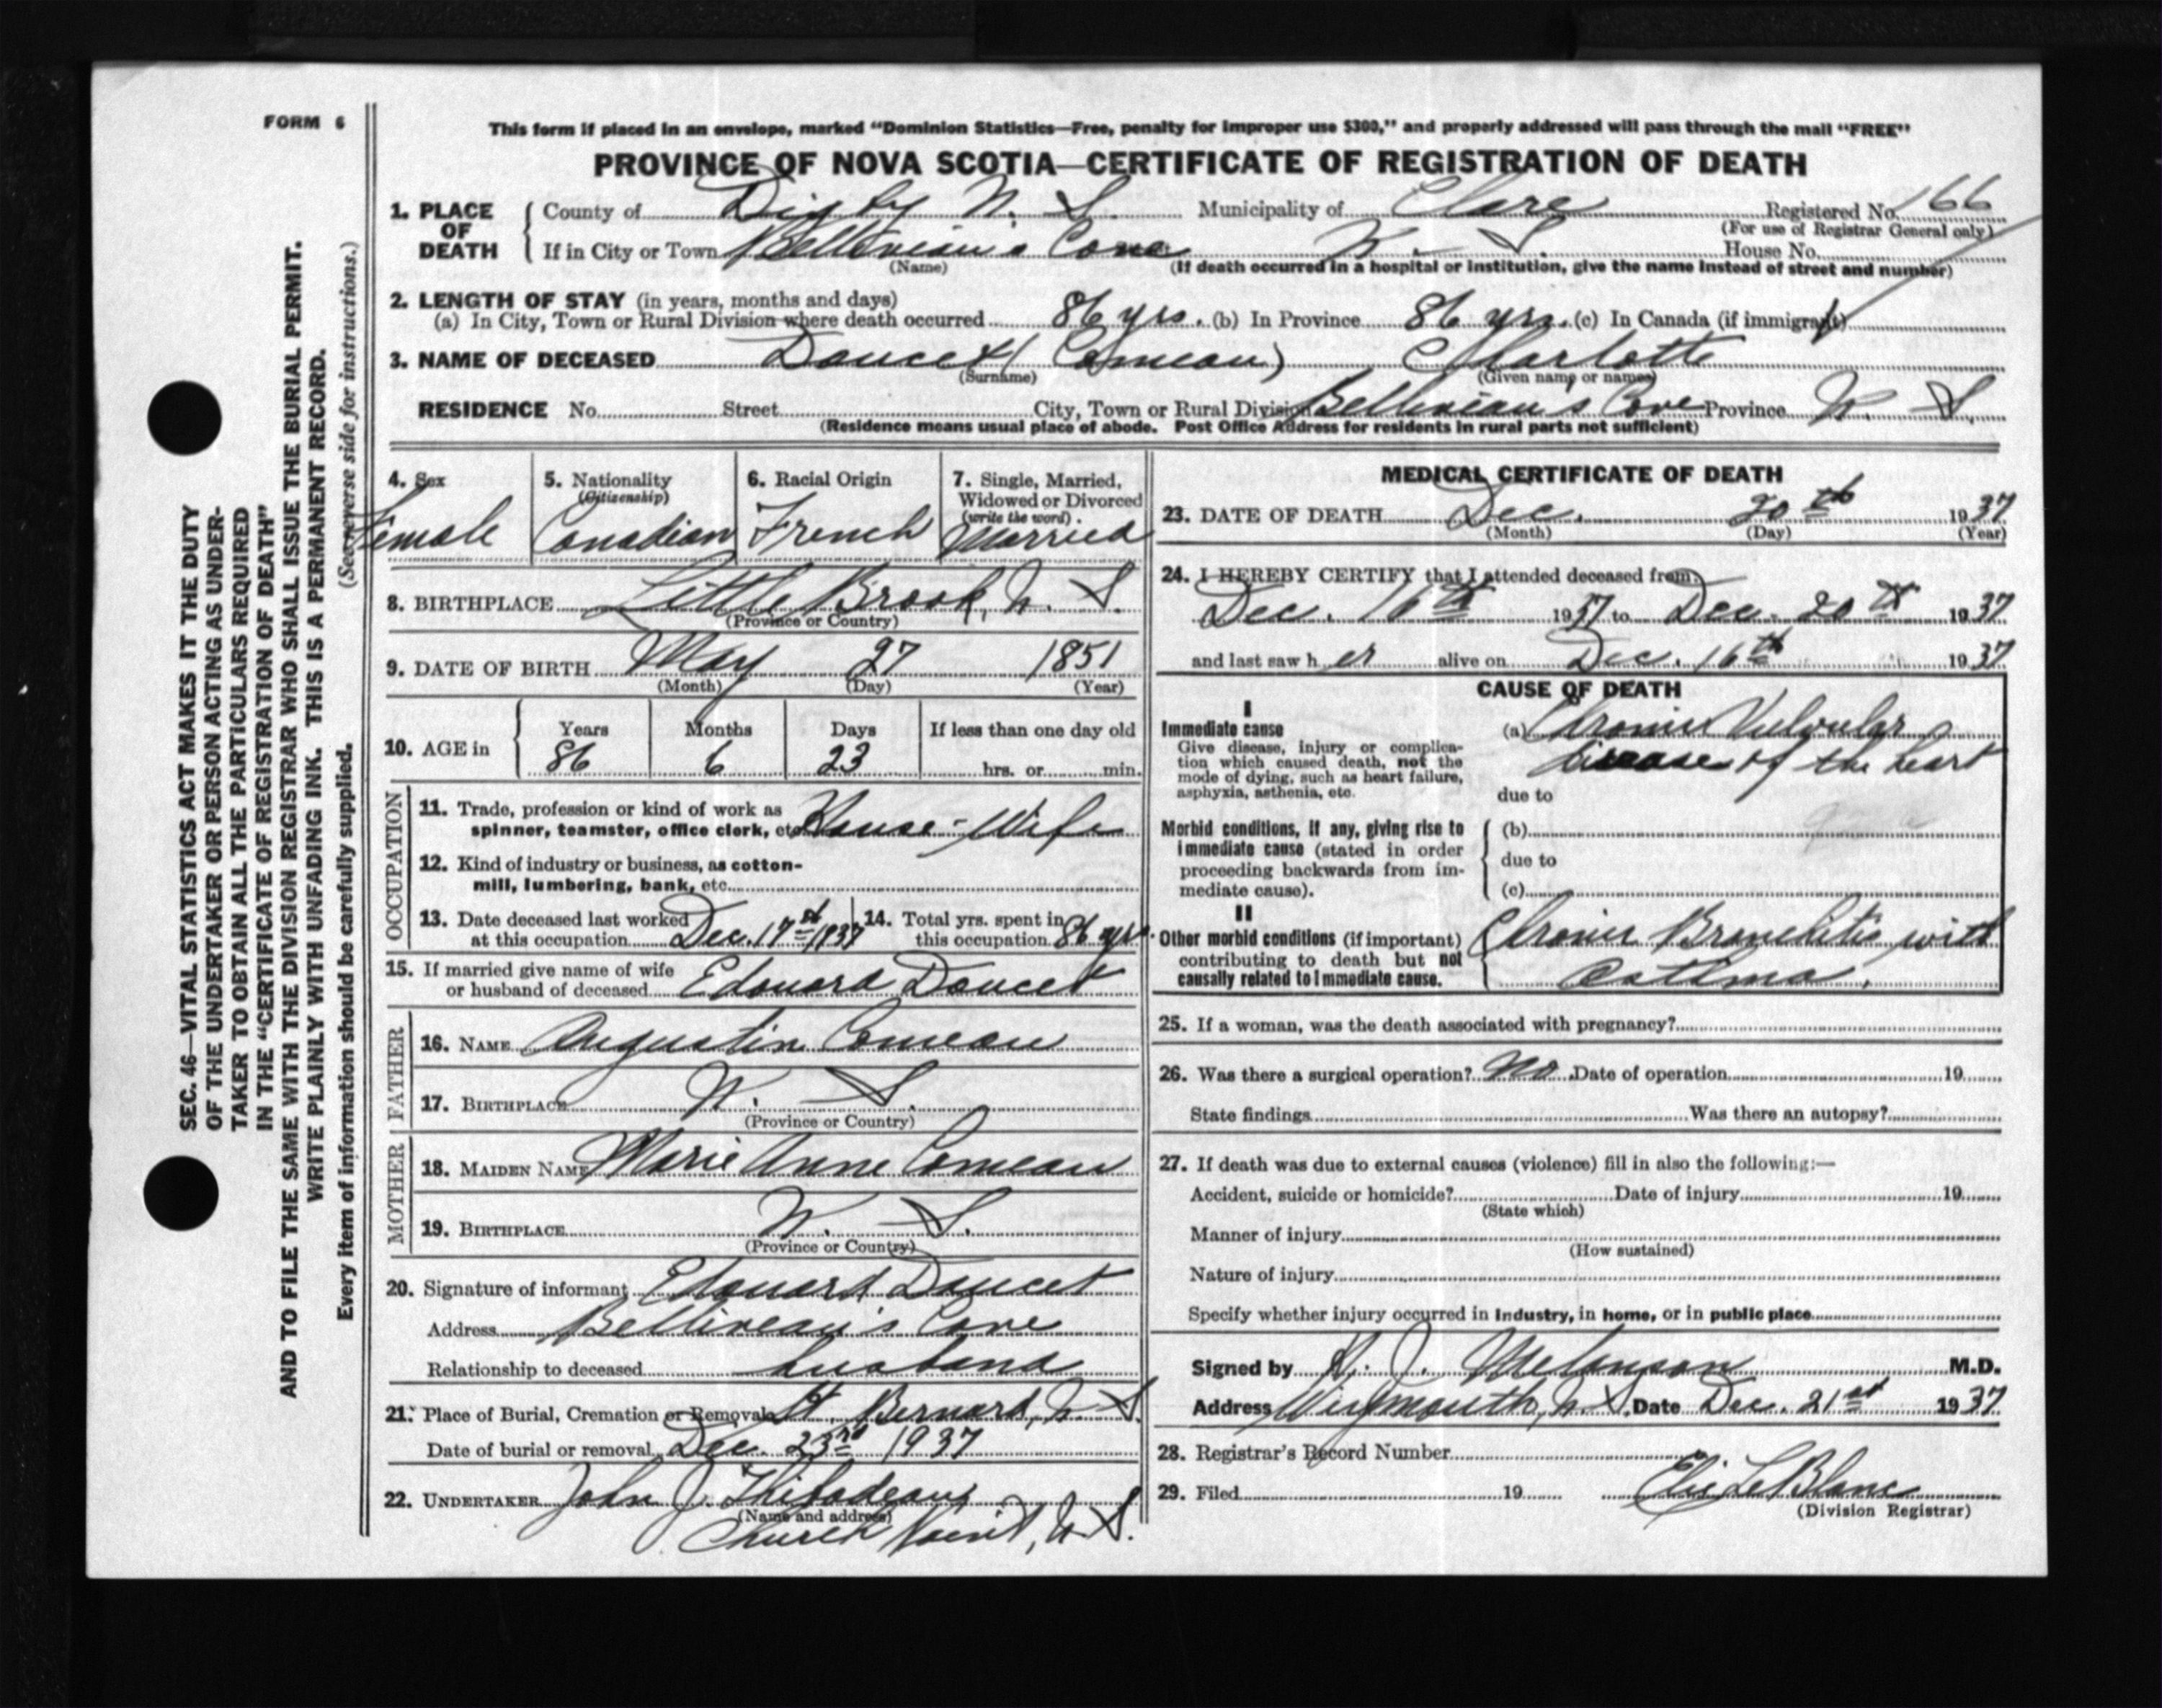 FORM 6
This form if placed in an envelope, marked “Dominion Statistics—Free, penalty for improper use $300,” and properly addressed will pass through the mail “FREE”
PROVINCE OF NOVA SCOTIA—CERTIFICATE OF REGISTRATION OF DEATH
1. PLACE OF DEATH
County of Digby N. S. Municipality of Clare Registered No. 166
(For use of Registrar General only)
If in City or Town Belliveau's Cove N. S. House No.
(Name) (If death occurred in a hospital or institution, give the name instead of street and number)
2. LENGTH OF STAY (in years, months and days)
(a) In City, Town or Rural Division where death occurred 86 yrs. (b) In Province 86 yrs. (c) In Canada (if immigrant)
3. NAME OF DECEASED Doucet (Comeau) Charlotte
(Surname) (Given name or names)
RESIDENCE No. Street City, Town or Rural Division Belliveau's Cove Province N. S.
(Residence means usual place of abode. Post Office Address for residents in rural parts not sufficient)
4. Sex
Female
5. Nationality
(Citizenship)
Canadian
6. Racial Origin
French
7. Single, Married,
Widowed or Divorced
(write the word)
Married
8. BIRTHPLACE Little Brook, N. S.
(Province or Country)
9. DATE OF BIRTH May 27 1851
(Month) (Day) (Year)
10. AGE in
Years Months Days If less than one day old
86 6 23 hrs. or min.
OCCUPATION
11. Trade, profession or kind of work as
spinner, teamster, office clerk, etc. House-Wife
12. Kind of industry or business, as cotton-
mill, lumbering, bank, etc.
13. Date deceased last worked
at this occupation Dec. 17st 1937
14. Total yrs. spent in
this occupation 86 yrs.
15. If married give name of wife
or husband of deceased Edouard Doucet
FATHER
16. NAME Augustin Comeau
17. BIRTHPLACE N. S.
(Province or Country)
MOTHER
18. MAIDEN NAME Marie Anne Comeau
19. BIRTHPLACE N. S.
(Province or Country)
20. Signature of informant Edouard Doucet
Address Belliveau's Cove
Relationship to deceased husband
21. Place of Burial, Cremation or Removal St. Bernard, N. S.
Date of burial or removal Dec. 23rd 1937
22. UNDERTAKER John J. Thibodeau
(Name and address)
Church Point, N. S.
MEDICAL CERTIFICATE OF DEATH
23. DATE OF DEATH Dec. 20th 1937
(Month) (Day) (Year)
24. I HEREBY CERTIFY that I attended deceased from
Dec. 16th 1937 to Dec. 20th 1937
and last saw her alive on Dec. 16th 1937
CAUSE OF DEATH
I
Immediate cause
Give disease, injury or complica-
tion which caused death, not the
mode of dying, such as heart failure,
asphyxia, asthenia, etc.
(a) Chronic Valvular
disease of the heart
due to
Morbid conditions, if any, giving rise to
immediate cause (stated in order
proceeding backwards from im-
mediate cause).
(b)
due to
(c)
II
Other morbid conditions (if important)
contributing to death but not
causally related to immediate cause.
Chronic Bronchitis with
asthma.
25. If a woman, was the death associated with pregnancy?
26. Was there a surgical operation? No. Date of operation 19
State findings Was there an autopsy?
27. If death was due to external causes (violence) fill in also the following:—
Accident, suicide or homicide? Date of injury 19
(State which)
Manner of injury
(How sustained)
Nature of injury
Specify whether injury occurred in industry, in home, or in public place
Signed by J. Melanson M.D.
Address Weymouth, N. S. Date Dec. 21st 1937
28. Registrar's Record Number
29. Filed 19 Elie LeBlanc
(Division Registrar)
SEC. 46—VITAL STATISTICS ACT MAKES IT THE DUTY
OF THE UNDERTAKER OR PERSON ACTING AS UNDER-
TAKER TO OBTAIN ALL THE PARTICULARS REQUIRED
IN THE “CERTIFICATE OF REGISTRATION OF DEATH”
AND TO FILE THE SAME WITH THE DIVISION REGISTRAR WHO SHALL ISSUE THE BURIAL PERMIT.
WRITE PLAINLY WITH UNFADING INK. THIS IS A PERMANENT RECORD.
Every item of information should be carefully supplied. (See reverse side for instructions.)